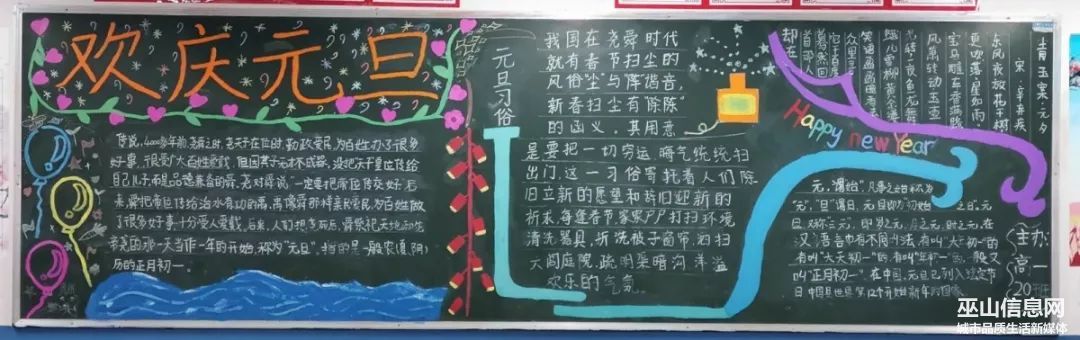 欢庆元旦
传说,4000多年前,尧舜之时,尧天子在位时,勤政爱民,为百姓办了很多
好事,很受广大百姓爱戴,但因其子无才不成器,没把天子皇位传给
自己儿子,而是品德兼备的舜。尧对舜说“一定要把帝位传交好
来要把帝位传给治水有功的禹,禹像舜那样亲民爱民,为百姓做
了很多好事,十分受人爱戴,后来,人们把尧死后,舜祭祀天地和先
帝尧的那一天当作一年的开始,称为“元旦”,指的是一般农(夏,阴)
历的正月初一。
元旦习俗
我国在尧舜时代
就有春节扫尘的
风俗“尘”与“陈”谐音,
新春扫尘有“除陈”
的函义,其用意
是要把一切穷运,晦气统统扫
出门,这一习俗寄托着人们除
旧立新的愿望和辞旧迎新的
祈求,每逢春节家家户户打扫环境
清洗器具,拆洗被子窗帘,洒扫
六闾庭院,疏明渠暗沟,洋溢
欢乐的气氛。
青玉案·元夕
宋·辛弃疾
东风夜放花千树
更吹落,星如雨,
宝马雕车香满路
凤箫声动,玉壶
光转,一夜鱼龙舞
蛾儿雪柳黄金缕
笑语盈盈暗香去
众里寻
他千百度
蓦然回
首那人
却在
Happy new Year
元,谓“始”,凡事之始称为
“元”;“旦”谓日,元旦即为初始之日。元
旦又称“三元”,即岁之元、月之元、时之元,在
汉语言中有不同叫法,有叫“大年初一”的
有叫“大天初一”的,有叫“年初一”的,一般又
叫“正月初一”,在中国,元旦已列入法定节
日
主办:
高一
20班
巫山信息网
城市品质生活新媒体